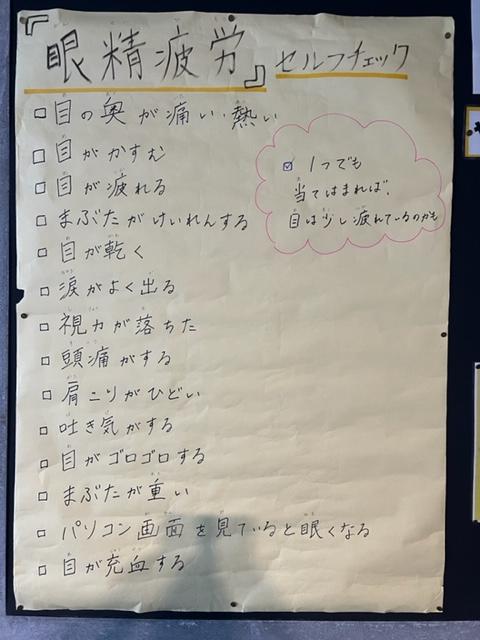 『眼精疲労』セルフチェック
□目の奥が痛い・熱い
□目がかすむ
□目が疲れる
□まぶたがけいれんする
□目が乾く
□涙がよく出る
□視力が落ちた
□頭痛がする
□肩こりがひどい
□吐き気がする
□目がゴロゴロする
□まぶたが重い
□パソコン画面を見ていると眠くなる
□目が充血する
☑1つでも
当てはまれば、
目は少し疲れているのかも